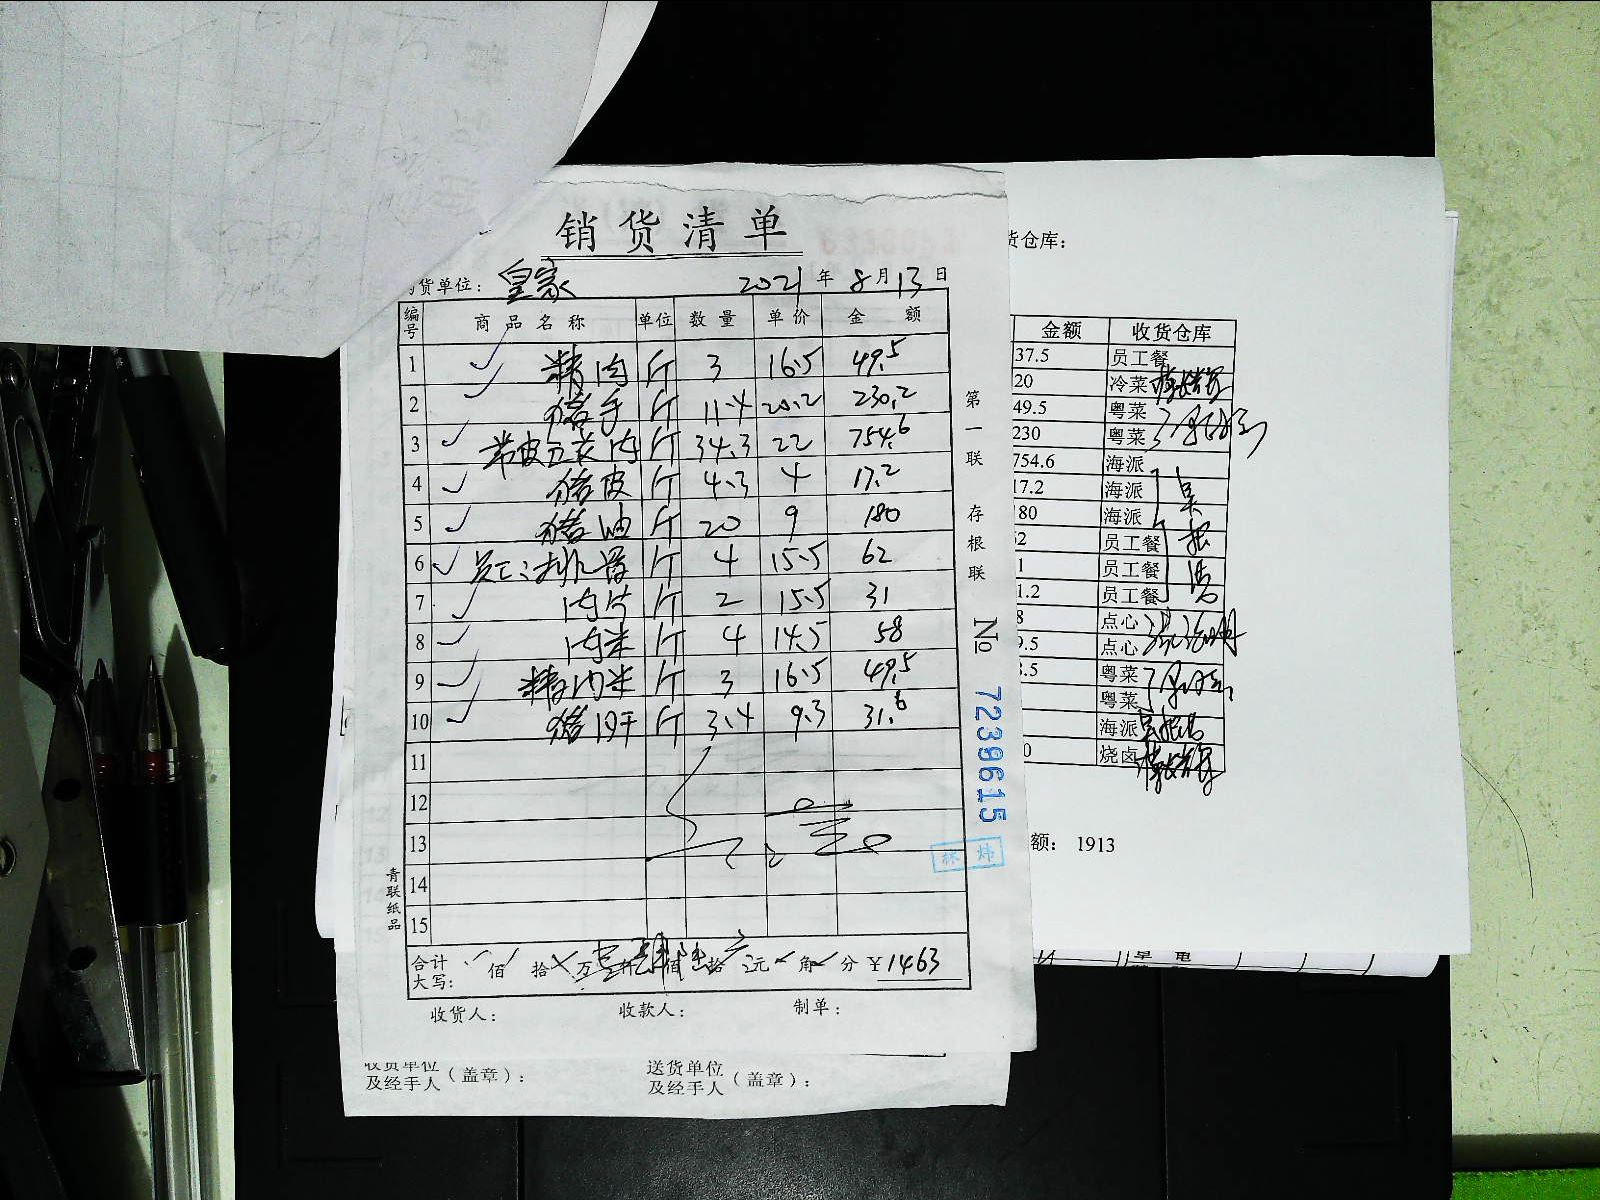 销货清单
货单位：皇家 2021年8月13日
编号 商品名称 单位 数量 单价 金额
1 精肉 斤 3 16.5 49.5
2 猪手 斤 11.4 20.2 230.2
3 带皮五花肉 斤 34.3 22 754.6
4 猪皮 斤 4.3 4 17.2
5 猪油 斤 20 9 180
6 员工:排骨 斤 4 15.5 62
7 肉片 斤 2 15.5 31
8 肉米 斤 4 14.5 58
9 精肉米 斤 3 16.5 49.5
10 猪肝 斤 3.4 9.3 31.6
11
12
13
14
15
合计大写： 佰 拾 万 仟 佰 拾 元 角 分 ¥1463
收货人： 收款人： 制单：
第一联 存根联
№ 7239615
林炜
青联纸品
收货单位及经手人（盖章）： 送货单位及经手人（盖章）：
货仓库：
金额 收货仓库
37.5 员工餐
20 冷菜
49.5 粤菜
230 粤菜
754.6 海派
17.2 海派
80 海派
2 员工餐
1 员工餐
1.2 员工餐
8 点心
9.5 点心
3.5 粤菜
粤菜
海派
0 烧卤
额： 1913